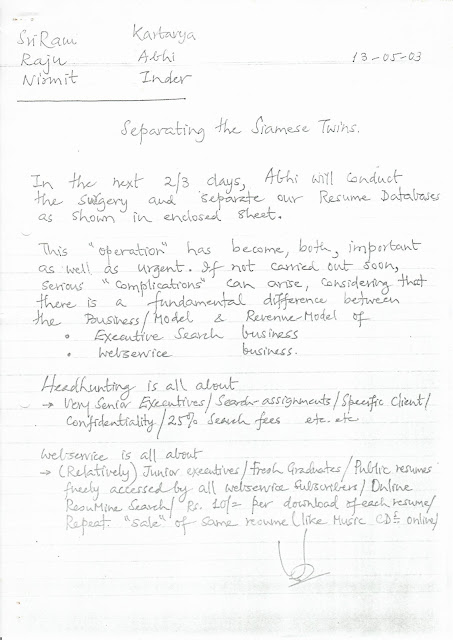 SriRam Kartavya
Raju Abhi 13-05-03
Nirmit Inder
Separating the Siamese Twins.
In the next 2/3 days, Abhi will conduct
the surgery and separate our Resume Databases
as shown in enclosed sheet.
This "operation" has become, both, important
as well as urgent. If not carried out soon,
serious "complications" can arise, considering that
there is a fundamental difference between
the Business/Model & Revenue Model of
• Executive Search business
• Webservice business.
Headhunting is all about
→ Very Senior Executives/Search-assignments/Specific Client/
Confidentiality/25% Search fees etc. etc
Webservice is all about
→ (Relatively) Junior executives/Fresh Graduates/Public resumes
freely accessed by all webservice Subscribers/Online
ResuMine Search/Rs. 10/= per download of each resume/
Repeat "sale" of same resume (like Music CDs online)